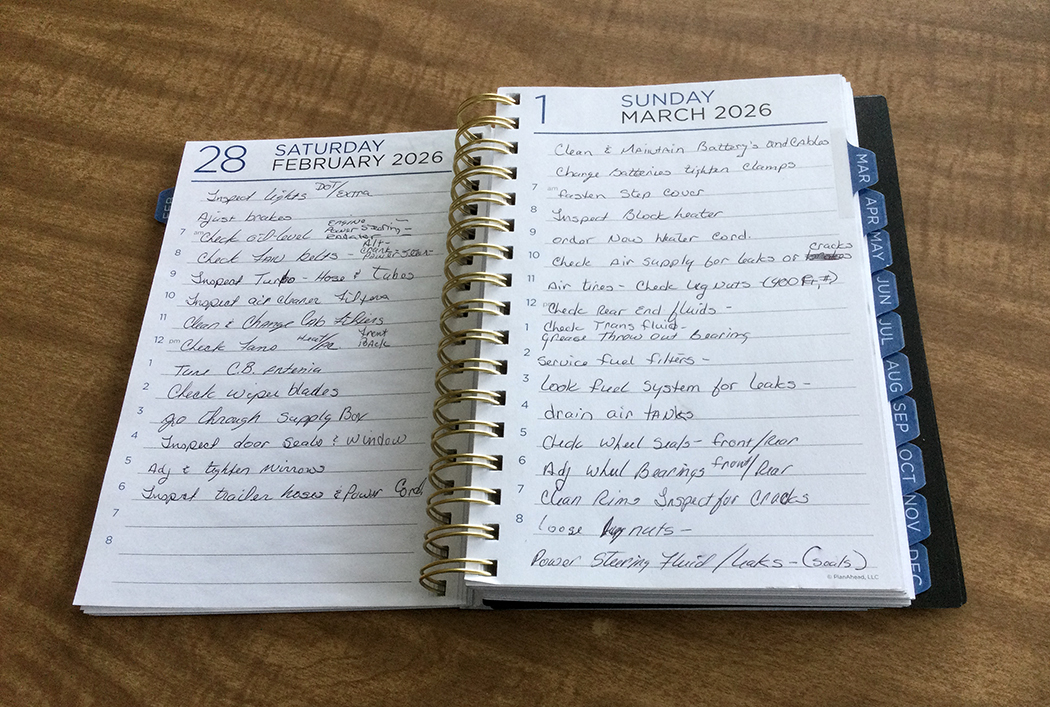 28
SATURDAY
FEBRUARY 2026
Inspect Lights DOT/EXTRA
Ajust brakes
7 am Check oil-level Engine - Power Steering -
8 Check Fan Belts - Alt- Power Steer-
9 Inspect Turbo - Hose & Tubes
10 Inspect air cleaner Filters
11 Clean & Change Cab Filters
12 pm Check Fans front back
1 Tune C.B. Antenia
2 Check wiper blades
3 go through Supply Box
4 Inspect door Seals & Window
5 Adj & tighten Mirrors
6 Inspect trailer hoses & Power Cord
7
8
1
SUNDAY
MARCH 2026
Clean & Maintain Battery's and Cables
Change Batteries tighten Clamps
7 am fasten Step Cover
8 Inspect Block heater
9 order New Heater Cord.
10 Check Air Supply for leaks or cracks
11 Air tires - Check Lug Nuts - (400 Ft, #)
12 Check Rear End fluids -
1 Check Trans fluid -
Grease Throw Out Bearing
2 Service fuel filters -
3 Look fuel System for Leaks -
4 drain air tanks
5 Check Wheel Seals - front/Rear
6 Adj Wheel Bearings front/Rear
7 Clean Rims Inspect for Cracks
8 loose lug nuts -
Power Steering Fluid / leaks - (Seals)
© PlanAhead, LLC
FEB
MAR
APR
MAY
JUN
JUL
AUG
SEP
OCT
NOV
DEC